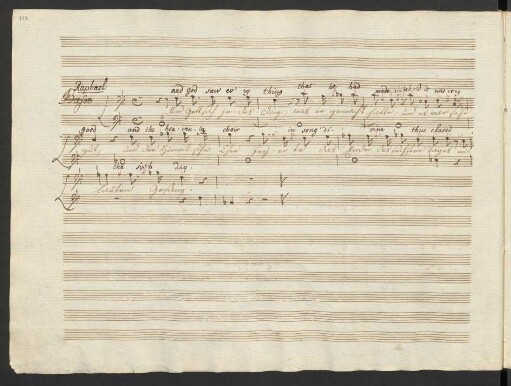 Raphael
and God saw ev'ry thing that he had made; & behold it was very
Und Gott sah je-des Ding, was er gemacht hatte; und es war sehr
good and the hea-ven-ly choir in song di-vine thus closed
gut, und der himmlische Chor fey-er-te das Ende des sechsten Tages mit
the sixth day.
lautem Gesang.